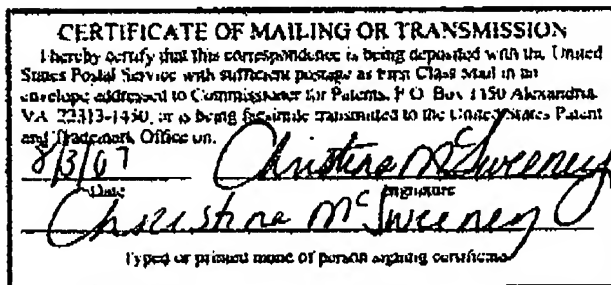 CERTIFICATE OF MAILING OR TRANSMISSION
I hereby certify that this correspondence is being deposited with the United
States Postal Service with sufficient postage as First Class Mail in an
envelope addressed to Commissioner for Patents, P.O. Box 1450 Alexandria
VA 22313-1450, or is being facsimile transmitted to the United States Patent
and Trademark Office on.
8/3/07 Christina McSweeney
Date Signature
Christina McSweeney
Typed or printed name of person signing certificate